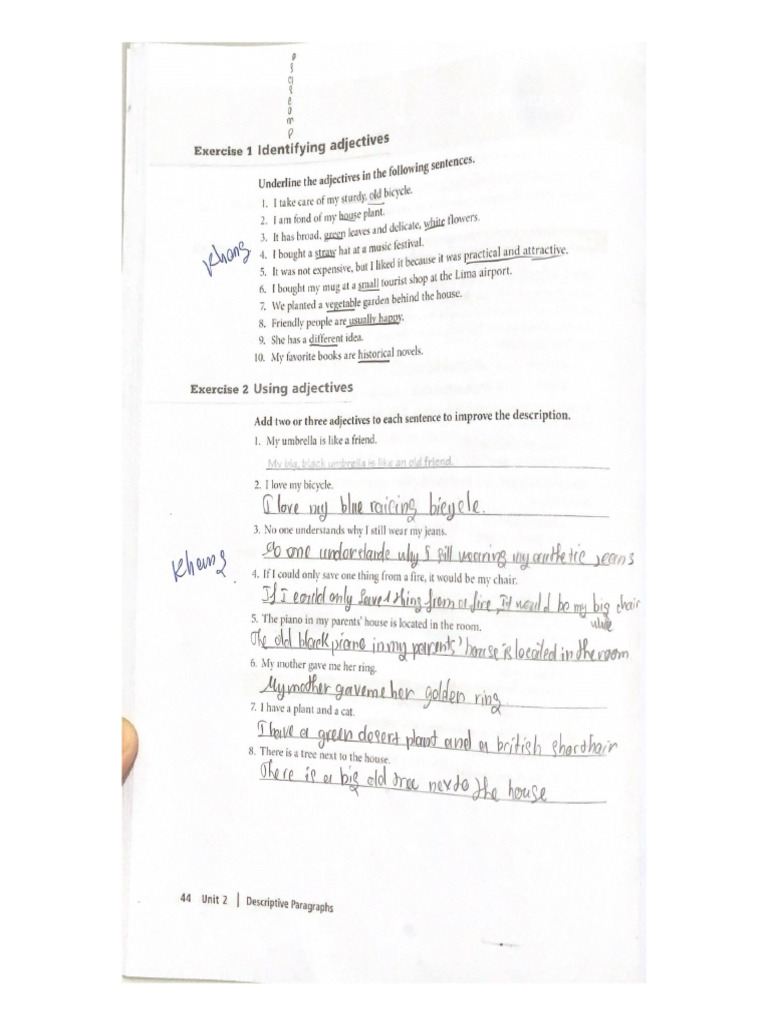 o
s
a
s
e
o
m
p
Exercise 1 Identifying adjectives
Underline the adjectives in the following sentences.
1. I take care of my sturdy, old bicycle.
2. I am fond of my house plant.
3. It has broad, green leaves and delicate, white flowers.
4. I bought a straw hat at a music festival.
Khang
5. It was not expensive, but I liked it because it was practical and attractive.
6. I bought my mug at a small tourist shop at the Lima airport.
7. We planted a vegetable garden behind the house.
8. Friendly people are usually happy.
9. She has a different idea.
10. My favorite books are historical novels.
Exercise 2 Using adjectives
Add two or three adjectives to each sentence to improve the description.
1. My umbrella is like a friend.
My big, black umbrella is like an old friend.
2. I love my bicycle.
I love my blue raicing bicycle.
3. No one understands why I still wear my jeans.
one understande why I still wearing my jeans
Khang
4. If I could only save one thing from a fire, it would be my chair.
If I could only save 1 thing from a fire, it would be my big chair
5. The piano in my parents' house is located in the room.
The old black piano in my parents' house is located in the room
6. My mother gave me her ring.
My mother gave me her golden ring.
7. I have a plant and a cat.
I have a green desert plant and a british shorthair
8. There is a tree next to the house.
There is a big old tree next to the house
44 Unit 2 | Descriptive Paragraphs